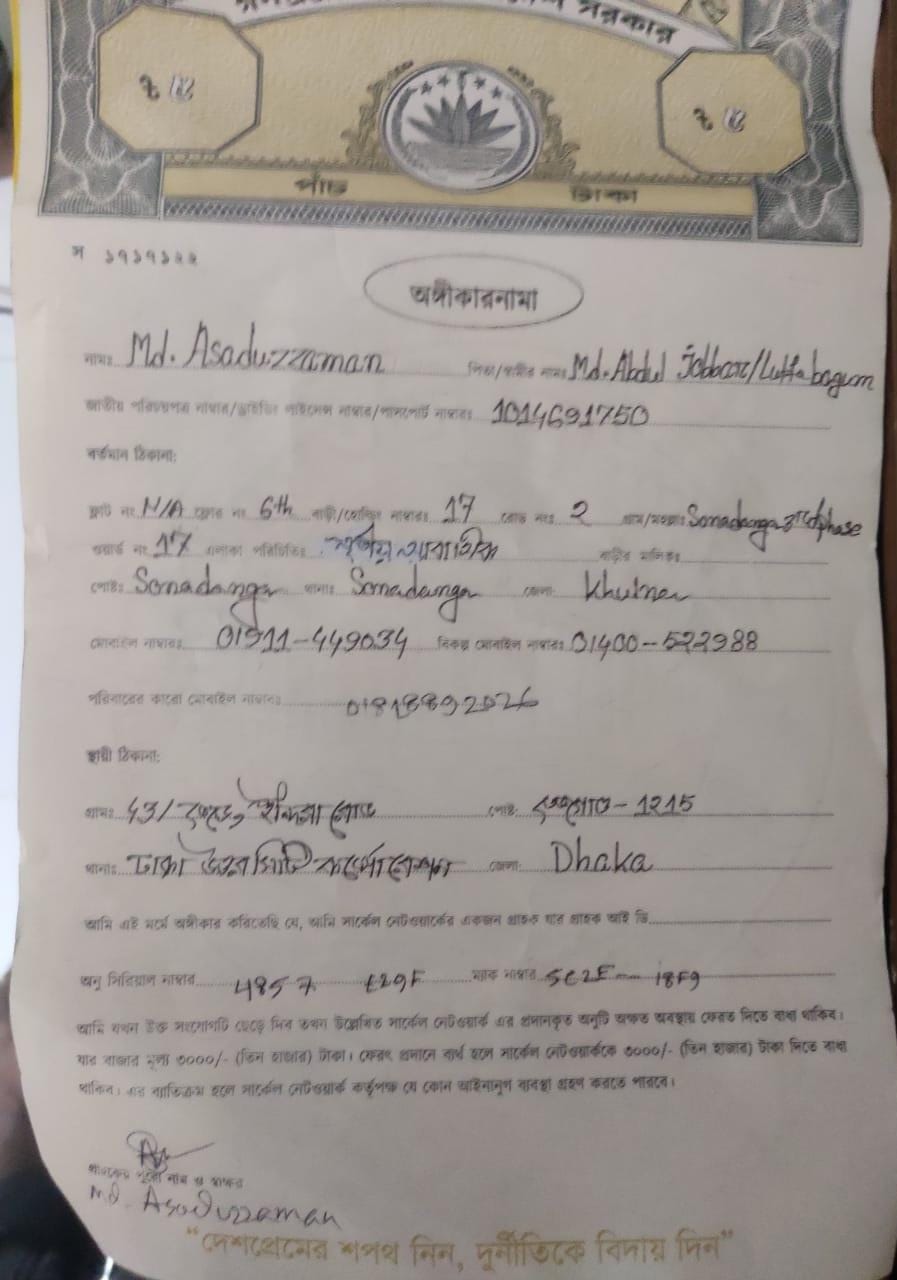 সরকার
৳ ৫ ৳ ৫
পাঁচ টাকা
স ১৭১৭১২২
অঙ্গীকারনামা
নামঃ Md. Asaduzzaman পিতা/স্বামীর নামঃ Md. Abdul Jobbar/Lutfa bagum
জাতীয় পরিচয়পত্র নাম্বার/ড্রাইভিং লাইসেন্স নাম্বার/পাসপোর্ট নাম্বারঃ 1014691750
বর্তমান ঠিকানা:
ফ্লাট নং N/A ফ্লোর নং 6th বাড়ী/হোল্ডিং নাম্বারঃ 17 রোড নংঃ 2 গ্রাম/মহল্লাঃ Sonadanga 3rd phase
ওয়ার্ড নং 17 এলাকা পরিচিতিঃ আবাসিক বাড়ির মালিকঃ
পোষ্টঃ Sonadanga থানাঃ Sonadanga জেলা: Khulna
মোবাইল নাম্বারঃ 01911-449034 বিকল্প মোবাইল নাম্বারঃ 01400-522988
পরিবারের কারো মোবাইল নাম্বারঃ 01818892026
স্থায়ী ঠিকানা:
গ্রামঃ 43/ রোড পোষ্ট: তেজগাঁও - 1215
থানাঃ ঢাকা উত্তর সিটি কর্পোরেশন জেলা: Dhaka
আমি এই মর্মে অঙ্গীকার করিতেছি যে, আমি সার্কেল নেটওয়ার্কের একজন গ্রাহক যার গ্রাহক আই ডি
অনু সিরিয়াল নাম্বার 4857 E29F ম্যাক নাম্বার 5C2E 18F9
আমি যখন উক্ত সংযোগটি ছেড়ে দিব তখন উল্লেখিত সার্কেল নেটওয়ার্ক এর প্রদানকৃত অনুটি অক্ষত অবস্থায় ফেরত দিতে বাধ্য থাকিব।
যার বাজার মূল্য ৩০০০/- (তিন হাজার) টাকা। ফেরৎ প্রদানে ব্যর্থ হলে সার্কেল নেটওয়ার্ককে ৩০০০/- (তিন হাজার) টাকা দিতে বাধ্য
থাকিব। এর ব্যতিক্রম হলে সার্কেল নেটওয়ার্ক কর্তৃপক্ষ যে কোন আইনানুগ ব্যবস্থা গ্রহণ করতে পারবে।
গ্রাহকের পুরো নাম ও স্বাক্ষর
Md. Asaduzzaman
"দেশপ্রেমের শপথ নিন, দুর্নীতিকে বিদায় দিন"